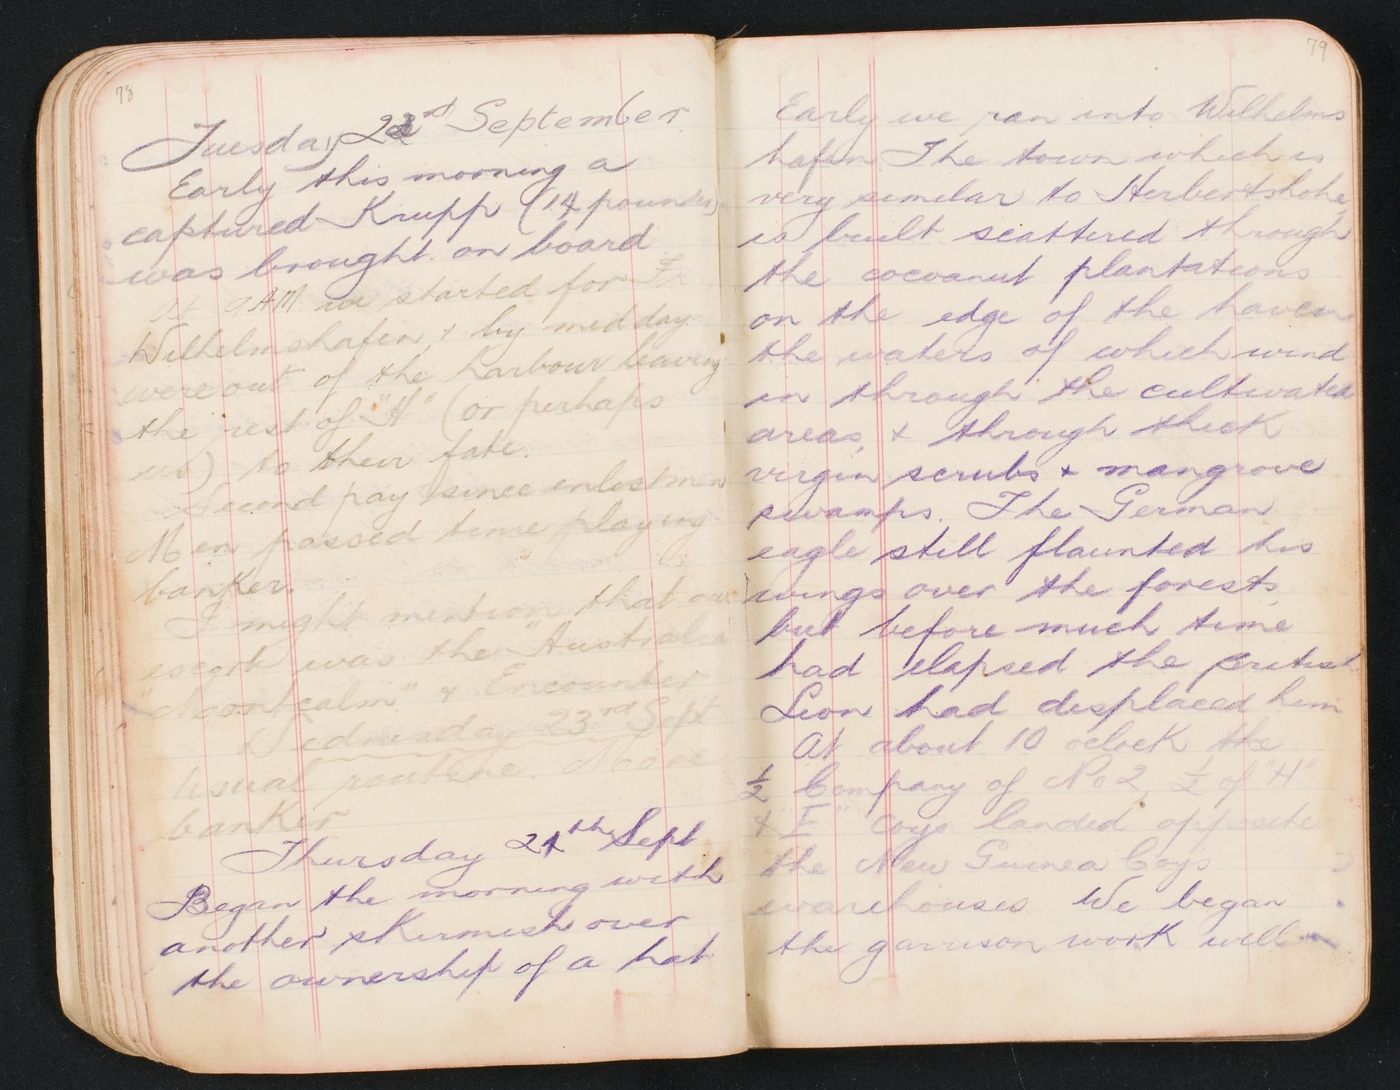 78
Tuesday 22nd September
Early this morning a
captured Krupp (14 pounder)
was brought on board
At 9 AM we started for Fr
Wilhelmshafen, & by midday
were out of the harbour leaving
the rest of "H" (or perhaps
us) to their fate.
Second pay since enlistmen
Men passed time playing
banker.
I might mention that our
escort was the "Australia
"Montcalm" & Encounter
Wednesday 23rd Sept
Usual routine. More
banker
Thursday 24th Sept
Began the morning with
another skirmish over
the ownership of a hat
79
Early we ran into Wilhelms
hafen The town which is
very similar to Herbertshohe,
is built scattered through
the cocoanut plantations
on the edge of the haven
the waters of which wind
in through the cultivated
areas, & through thick
virgin scrubs & mangrove
swamps. The German
eagle still flaunted his
wings over the forests,
but before much time
had elapsed the British
Lion had displaced him
At about 10 oclock the
½ Company of No 2, ½ of "H"
& "E" coys landed opposite
the New Guinea Coys
warehouses We began
the garrison work will